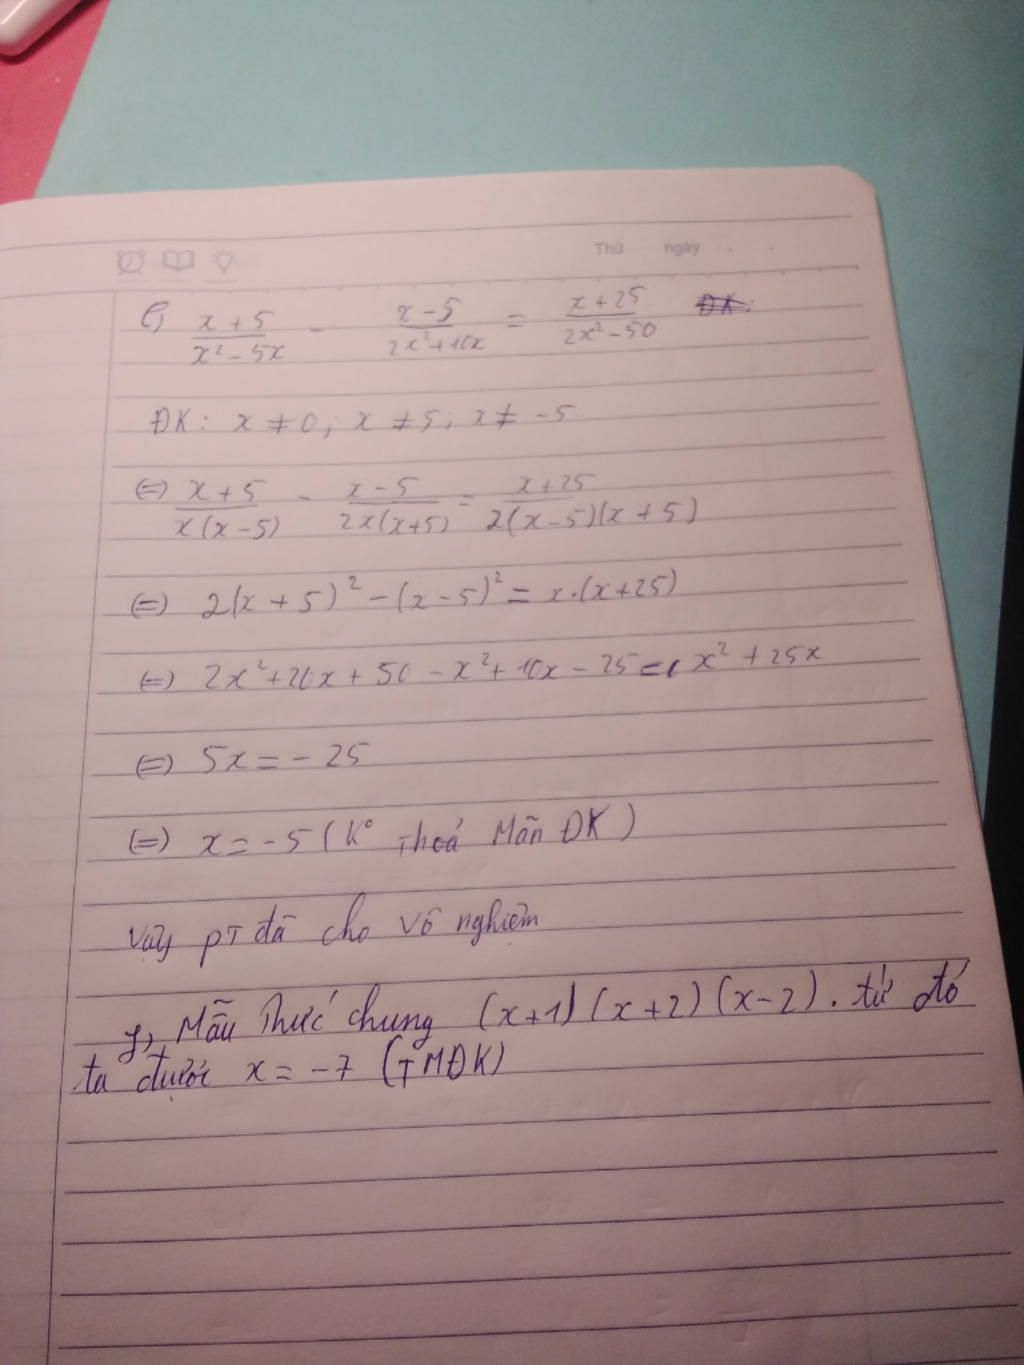 Thứ ngày
e, x + 5 / x² - 5x - x - 5 / 2x² + 10x = x + 25 / 2x² - 50
ĐK: x ≠ 0; x ≠ 5; x ≠ -5
(=) x + 5 / x(x - 5) - x - 5 / 2x(x+5) = x + 25 / 2(x - 5)(x + 5)
(=) 2(x + 5)² - (x - 5)² = x.(x+25)
(=) 2x² + 20x + 50 - x² + 10x - 25 = x² + 25x
(=) 5x = - 25
(=) x = -5 (K° Thoả Mãn ĐK)
Vậy PT đã cho vô nghiệm
f, Mẫu Thức chung (x+1)(x+2)(x-2). từ đó
ta được x = -7 (TMĐK)